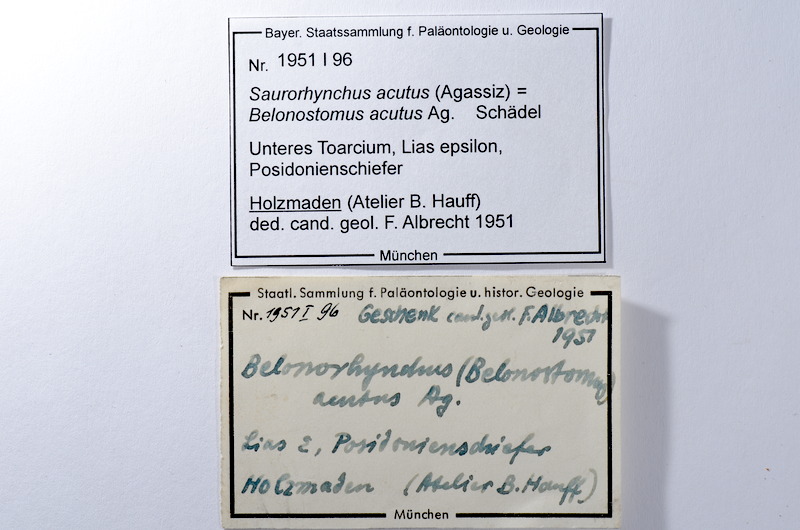 Bayer. Staatssammlung f. Paläontologie u. Geologie
Nr. 1951 I 96
Saurorhynchus acutus (Agassiz) =
Belonostomus acutus Ag. Schädel
Unteres Toarcium, Lias epsilon,
Posidonienschiefer
Holzmaden (Atelier B. Hauff)
ded. cand. geol. F. Albrecht 1951
München
Staatl. Sammlung f. Paläontologie u. histor. Geologie
Nr. 1951 I 96 Geschenk cand. geol. F. Albrecht
1951
Belonorhynchus (Belonostomus)
acutus Ag.
Lias ε, Posidonienschiefer
Holzmaden (Atelier B. Hauff)
München